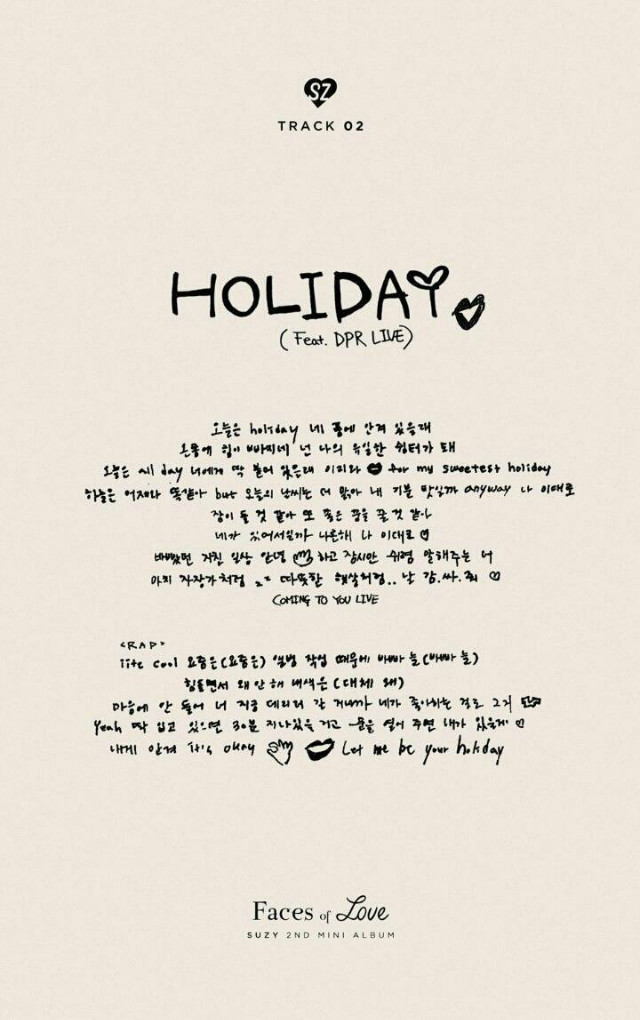 SZ
TRACK 02
HOLIDAY
(Feat. DPR LIVE)
오늘은 holiday 네 품에 안겨 있을래
온몸에 힘이 빠지네 넌 나의 유일한 쉼터가 돼
오늘은 all day 너에게 딱 붙어 있을래 이리와 for my sweetest holiday
하늘은 어제와 똑같아 but 오늘의 날씨는 더 맑아 내 기분 탓일까 anyway 나 이대로
잠이 들 것 같아 또 좋은 꿈을 꿀 것 같아
네가 있어서일까 나른해 나 이대로
바빴던 지친 일상 안녕 하고 잠시만 쉬렴 말해주는 너
마치 자장가처럼 zz 따뜻한 햇살처럼.. 날 감.싸.줘
COMING TO YOU LIVE
<RAP>
it's cool 요즘은(요즘은) 앨범 작업 때문에 바빠 늘(바빠 늘)
힘들면서 왜 안 해 내색은(대체 왜)
마음에 안 들어 너 지금 데리러 갈 거니까 네가 좋아하는 걸로 2개
Yeah 딱 입고 있으면 30분 지나있을 거고 문을 열어 주면 내가 있을게
내게 안겨 it's okay Let me be your holiday
Faces of Love
SUZY 2ND MINI ALBUM